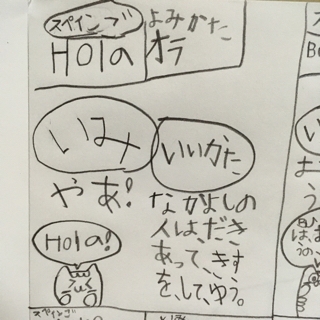 スペインゴ
Hola
よみかた
オラ
いみ
やあ!
いいかた
なかよしの
人は、だき
あって、きす
を、して、ゆう。
Hola!
スペインゴ